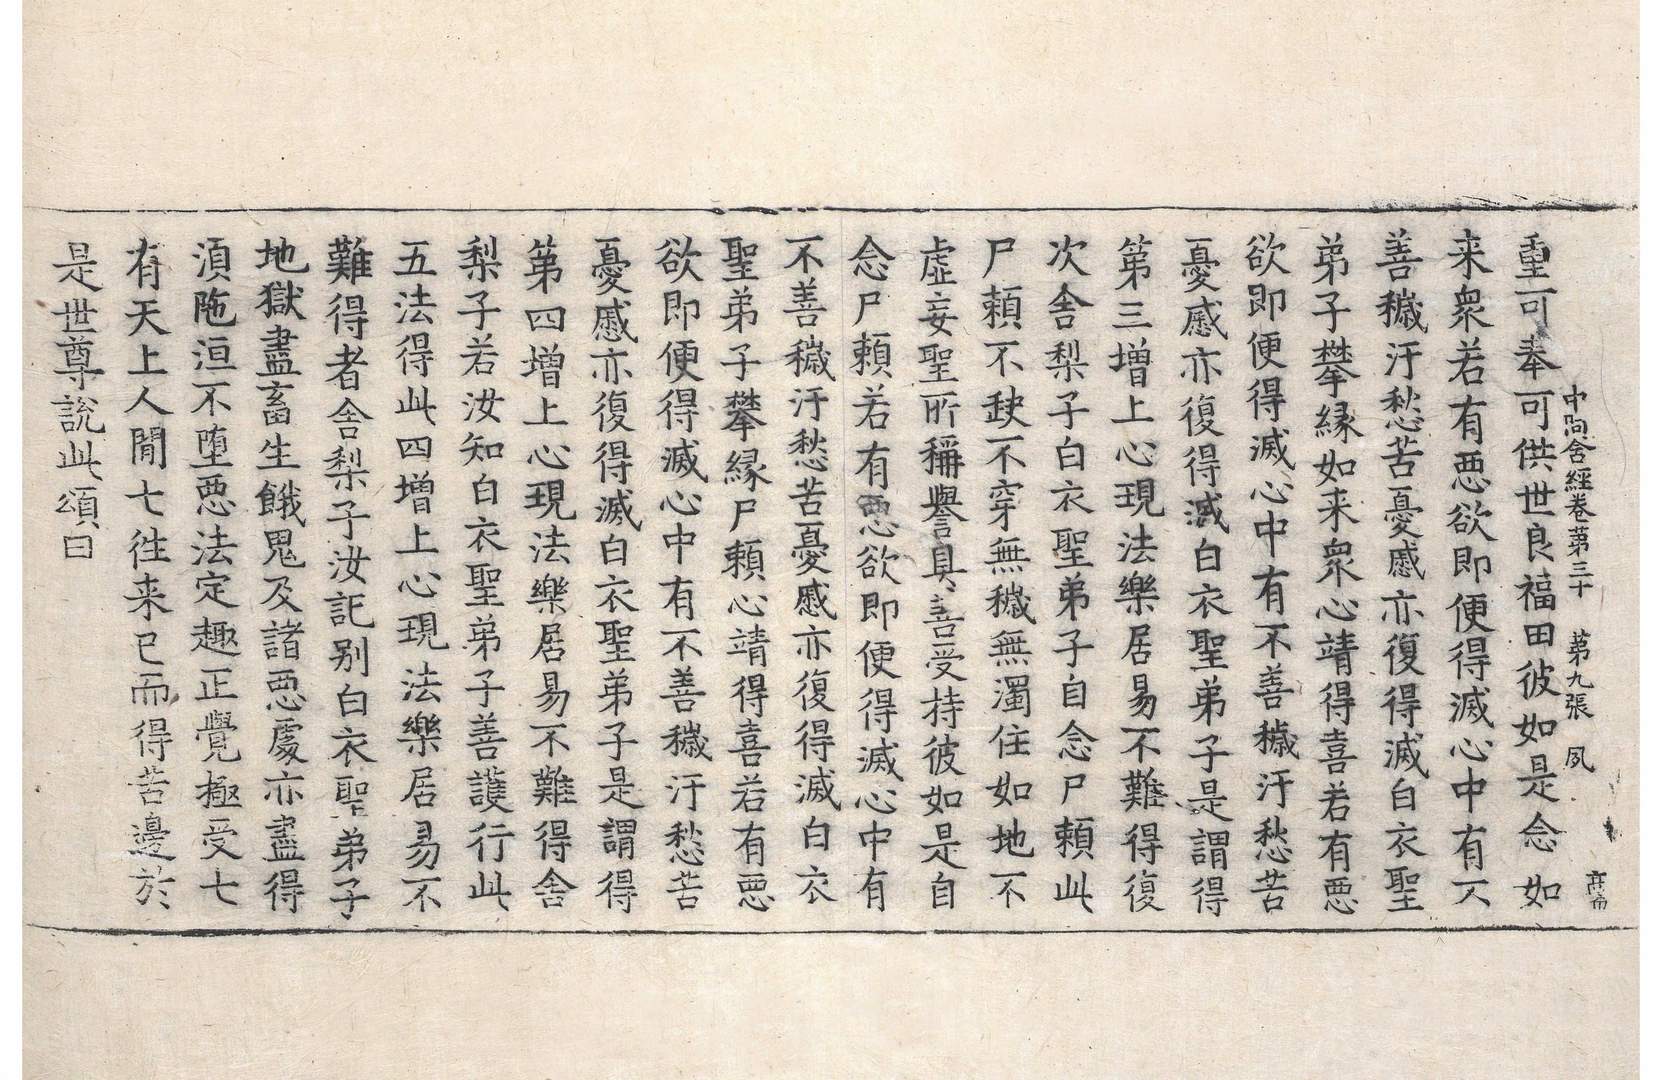 中阿含經卷第三十　第九張　夙
重可奉可供世良福田彼如是念如
来衆若有惡欲即便得滅心中有不
善穢汙愁苦憂慼亦復得滅白衣聖
弟子攀縁如来衆心靖得喜若有惡
欲即便得滅心中有不善穢汙愁苦
憂慼亦復得滅白衣聖弟子是謂得
第三增上心現法樂居易不難得復
次舍梨子白衣聖弟子自念尸賴此
尸賴不缺不穿無穢無濁住如地不
虛妄聖所稱譽具善受持彼如是自
念尸賴若有惡欲即便得滅心中有
不善穢汙愁苦憂慼亦復得滅白衣
聖弟子攀縁尸賴心靖得喜若有惡
欲即便得滅心中有不善穢汙愁苦
憂慼亦復得滅白衣聖弟子是謂得
第四增上心現法樂居易不難得舍
梨子若汝知白衣聖弟子善護行此
五法得此四增上心現法樂居易不
難得者舍梨子汝記别白衣聖弟子
地獄盡畜生餓鬼及諸惡處亦盡得
湏陁洹不墮惡法定趣正覺極受七
有天上人間七往来已而得苦邊於
是世尊說此頌曰